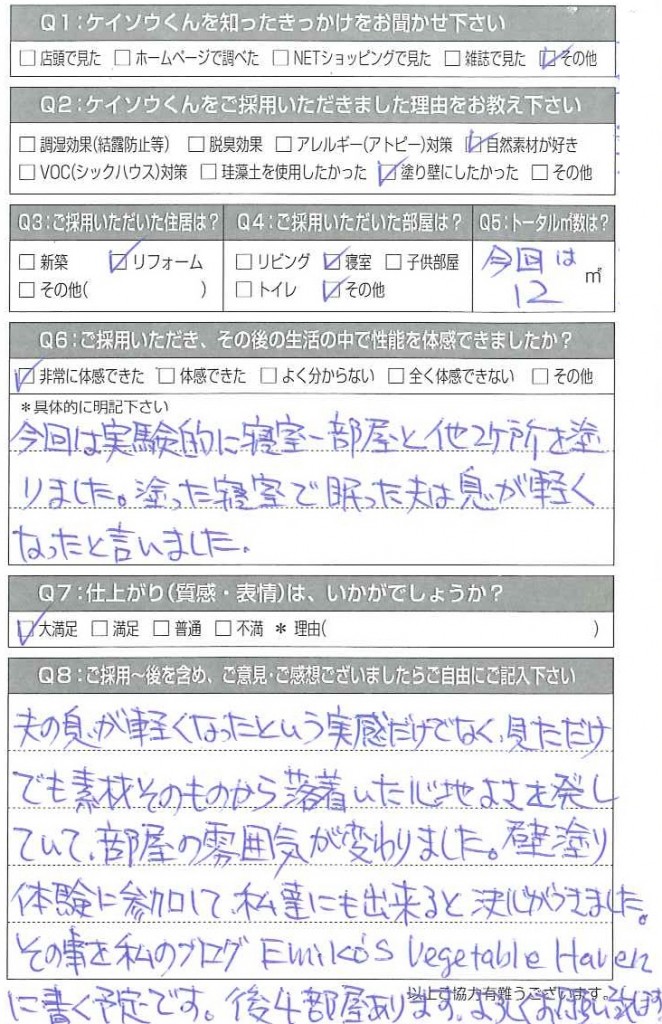 Q1：ケイソウくんを知ったきっかけをお聞かせ下さい
□店頭で見た □ホームページで調べた □NETショッピングで見た □雑誌で見た ☑その他
Q2：ケイソウくんをご採用いただきました理由をお教え下さい
□調湿効果(結露防止等) □脱臭効果 □アレルギー(アトピー)対策 ☑自然素材が好き
□VOC(シックハウス)対策 □珪藻土を使用したかった ☑塗り壁にしたかった □その他
Q3：ご採用いただいた住居は？
□新築 ☑リフォーム
□その他( )
Q4：ご採用いただいた部屋は？
□リビング ☑寝室 □子供部屋
□トイレ ☑その他
Q5：トータル㎡数は？
今回は
12 ㎡
Q6：ご採用いただき、その後の生活の中で性能を体感できましたか？
☑非常に体感できた □体感できた □よく分からない □全く体感できない □その他
＊具体的に明記下さい
今回は実験的に寝室一部屋と他2ケ所を塗
りました。塗った寝室で眠った夫は息が軽く
なったと言いました。
Q7：仕上がり(質感・表情)は、いかがでしょうか？
☑大満足 □満足 □普通 □不満 ＊理由( )
Q8：ご採用～後を含め、ご意見・ご感想ございましたらご自由にご記入下さい
夫の息が軽くなったという実感だけでなく、見ただけ
でも素材そのものから落着いた心地よさを発し
ていて、部屋の雰囲気が変わりました。壁塗り
体験に参加して、私達にも出来ると決心がつきました。
その事を私のブログ Emiko's Vegetable Haven
以上ご協力有難うございます。
に書く予定です。後4部屋あります。よろしくお願いします